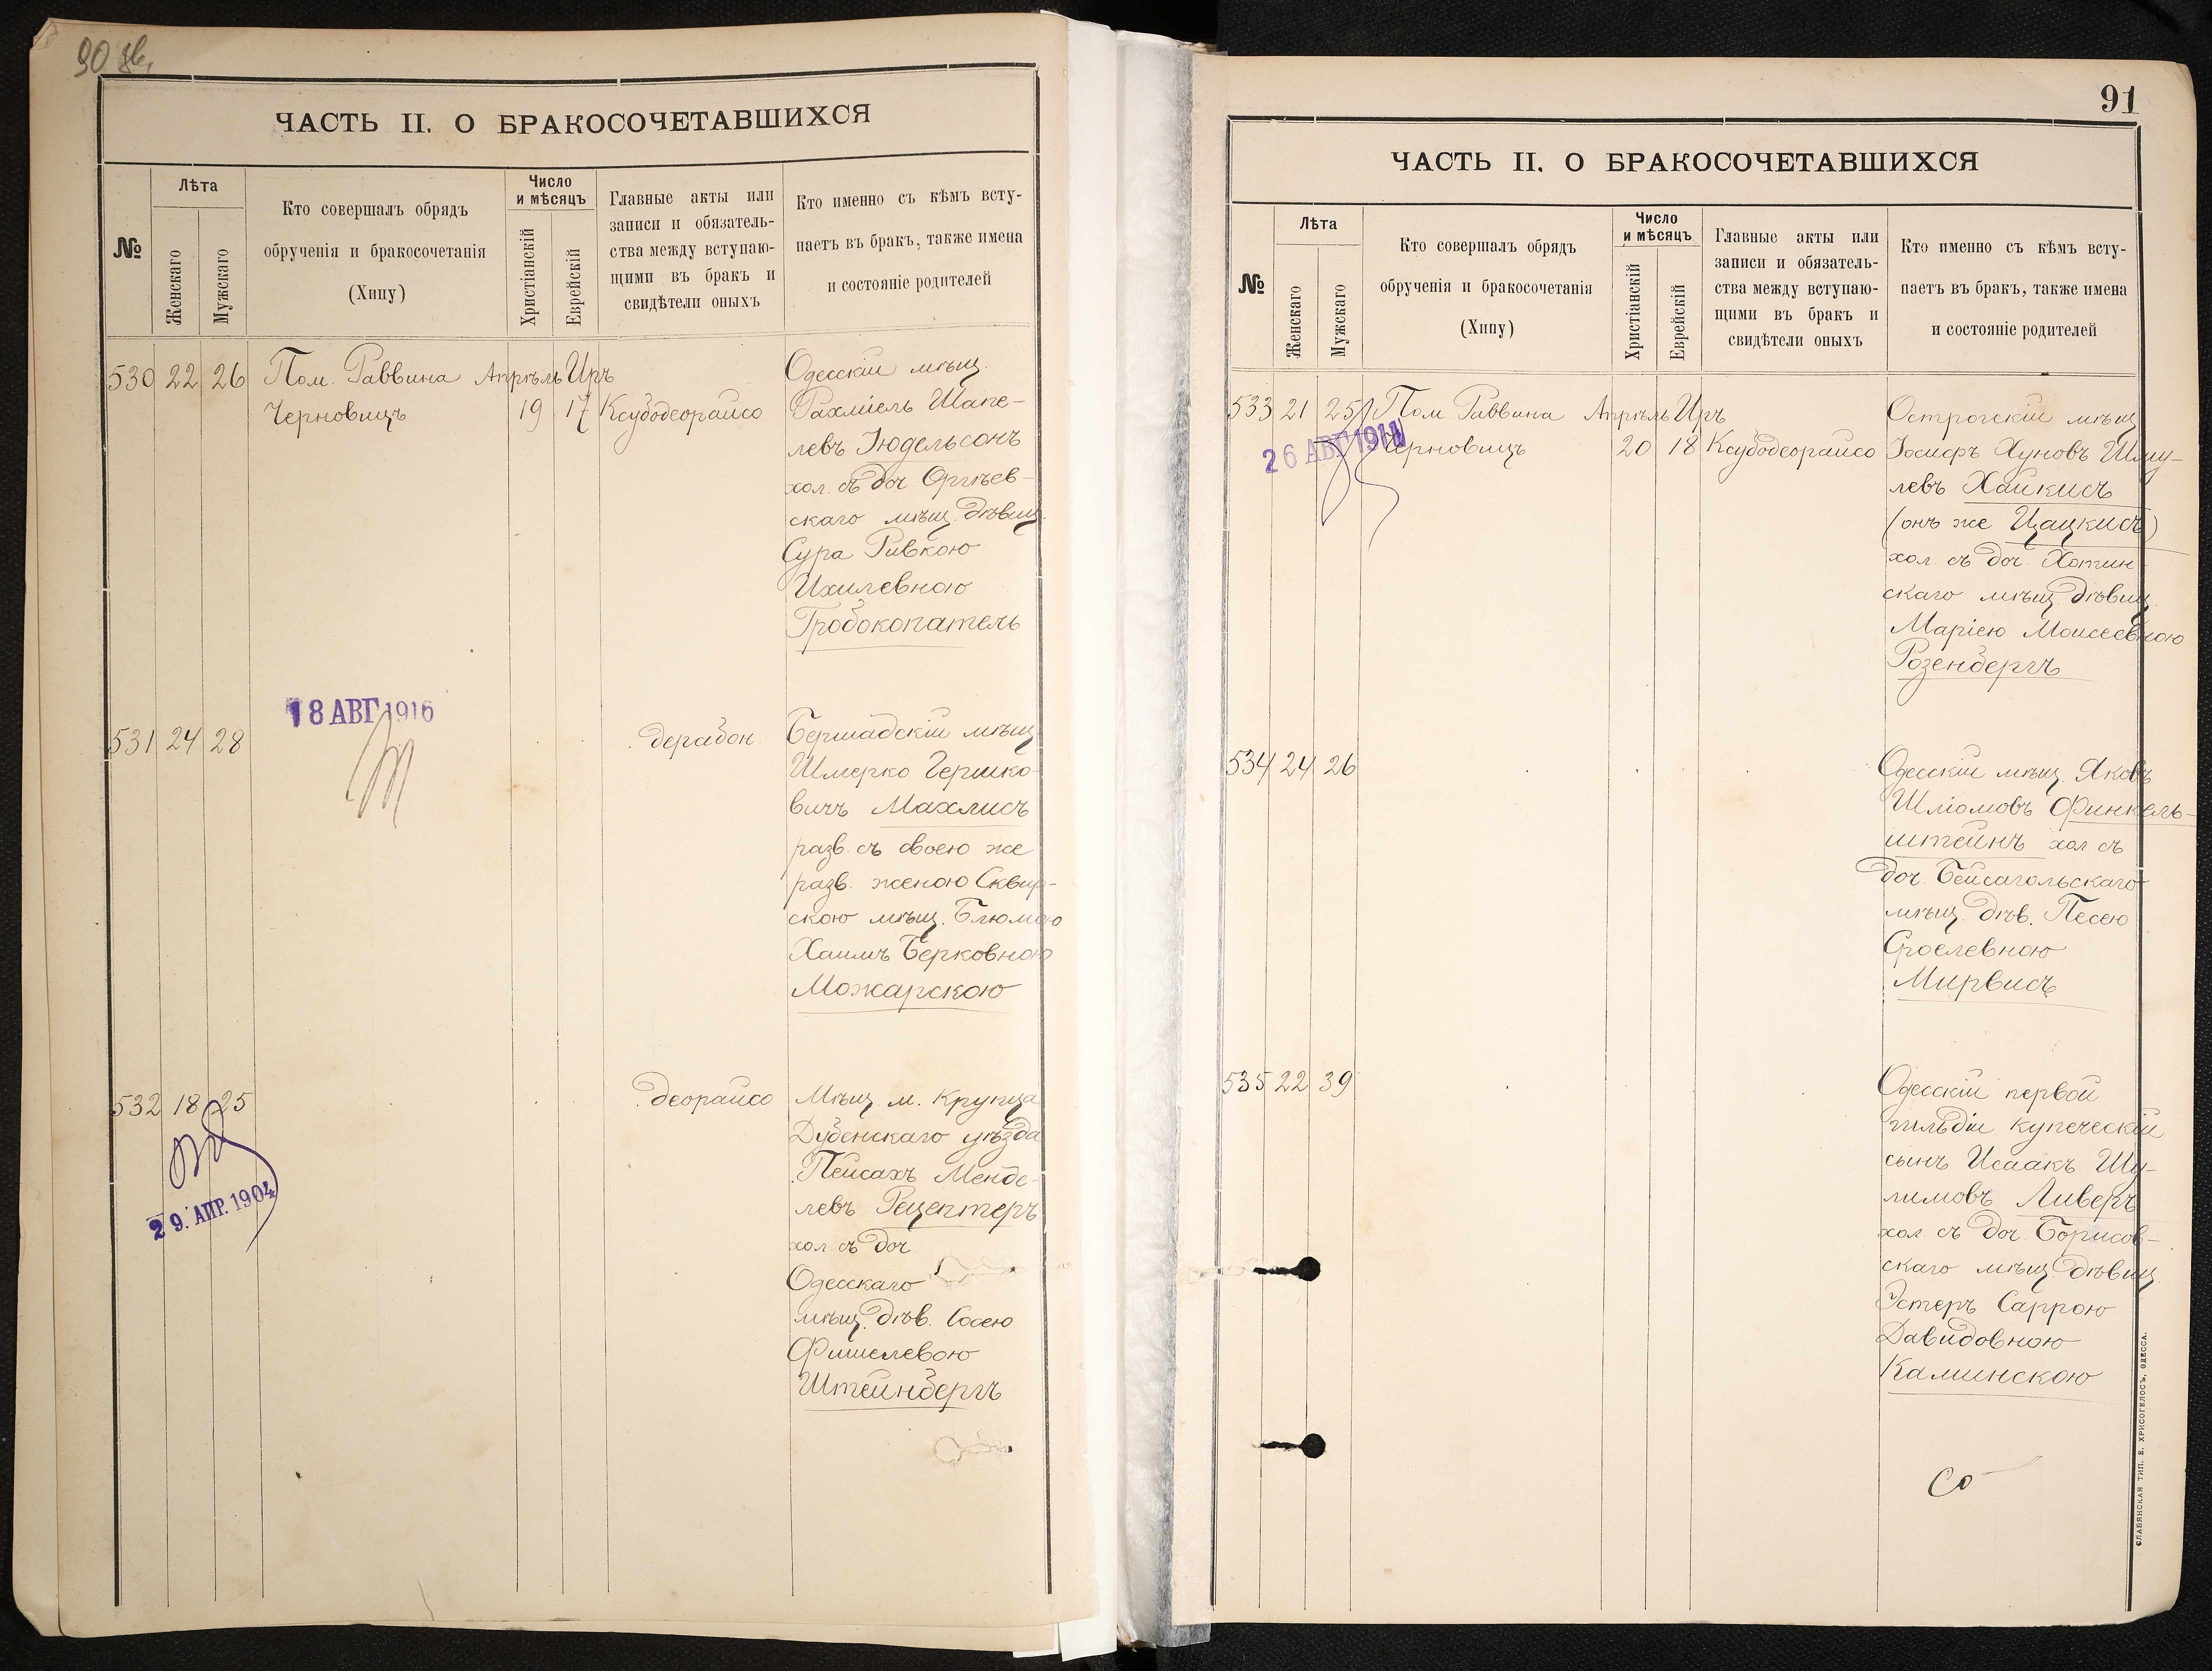 90 зв.
ЧАСТЬ II. О БРАКОСОЧЕТАВШИХСЯ
№
Лѣта
Женскаго
Мужскаго
Кто совершалъ обрядъ
обрученія и бракосочетанія
(Хипу)
Число
и мѣсяцъ
Христіанскій
Еврейскій
Главные акты или
записи и обязатель-
ства между вступаю-
щими въ бракъ и
свидѣтели оныхъ
Кто именно съ кѣмъ всту-
паетъ въ бракъ, также имена
и состояніе родителей
530 22 26 Пом. Раввина Апрѣль Иръ
Черновицъ 19 17 Ксубодеорайсо
Одесскій мѣщ.
Рахміель Шапе-
левъ Іюдельсонъ
хол. съ доч. Оргѣев-
скаго мѣщ. дѣвиц.
Сура Ривкою
Ихилевною
Гробокопатель
18 АВГ 1916
531 24 28 . . . дерабон.
Бершадскій мѣщ.
Шмерко Гершко-
вичъ Махлисъ
разв. съ своею же
разв. женою Сквир-
скою мѣщ. Блюмою
Хаимъ Берковною
Можарскою
532 18 25 . . . деорайсо
29. АПР. 1904
Мѣщ. м. Крупца
Дубенскаго уѣзда
Пейсахъ Менде-
левъ Рецептеръ
хол. съ доч.
Одесскаго
мѣщ. дѣв. Сосею
Фишелевою
Штейнбергъ
91
ЧАСТЬ II. О БРАКОСОЧЕТАВШИХСЯ
№
Лѣта
Женскаго
Мужскаго
Кто совершалъ обрядъ
обрученія и бракосочетанія
(Хипу)
Число
и мѣсяцъ
Христіанскій
Еврейскій
Главные акты или
записи и обязатель-
ства между вступаю-
щими въ бракъ и
свидѣтели оныхъ
Кто именно съ кѣмъ всту-
паетъ въ бракъ, также имена
и состояніе родителей
533 21 25 Пом. Раввина Апрѣль Иръ
Черновицъ 20 18 Ксубодеорайсо
26 АВГ 1911
Острогскій мѣщ.
Іосифъ Хуновъ Шму-
левъ Хайкисъ
(онъ же Цацкисъ)
хол. съ доч. Хотин-
скаго мѣщ. дѣвиц.
Маріею Моисеевною
Розенбергъ
534 24 26
Одесскій мѣщ. Яковъ
Шліомовъ Финкель-
штейнъ хол. съ
доч. Бейсагольскаго
мѣщ. дѣв. Песею
Сроелевною
Мирвисъ
535 22 39
Одесскій первой
гильдіи купеческій
сынъ Исаакъ Шу-
лимовъ Ливеръ
хол. съ доч. Борисов-
скаго мѣщ. дѣвиц.
Эстеръ Саррою
Давидовною
Каминскою
Со
СЛАВЯНСКАЯ ТИП. Е. ХРИСОГЕЛОСЪ, ОДЕССА.